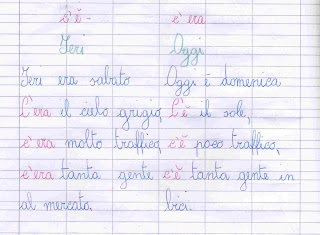 c'è - c'era
Ieri Oggi
Ieri era sabato Oggi è domenica
C'era il cielo grigio, C'è il sole,
c'era molto traffico, c'è poco traffico,
c'era tanta gente c'è tanta gente in
al mercato. bici.